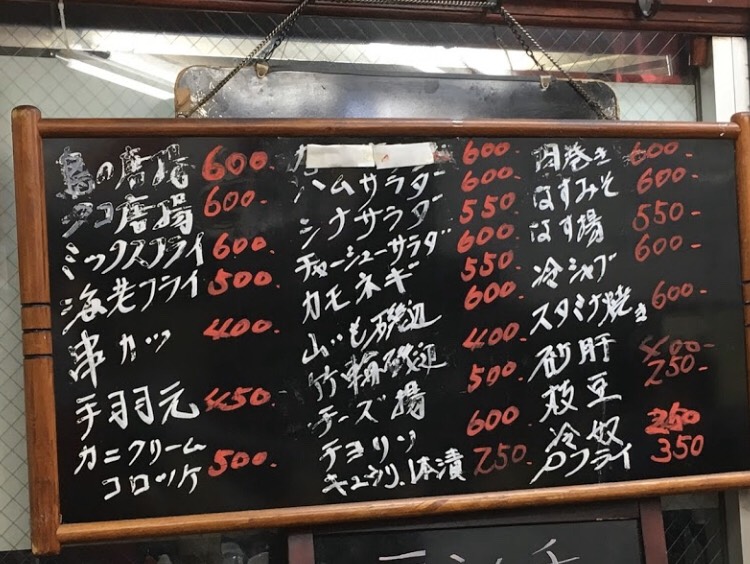 鳥の唐揚 600-
タコ唐揚 600-
ミックスフライ 600-
海老フライ 500-
串カツ 400-
手羽元 450-
カニクリーム
コロッケ 500-
600-
ハムサラダー 600-
シナサラダー 550-
チャーシューサラダ 600-
カモネギ 550-
山いも磯辺 600-
竹輪磯辺 400-
チーズ揚 500-
チヨリソ 600-
キュウリ1本漬 250-
肉巻き 600-
はすみそ 600-
はす揚 550-
冷シャブ 600-
スタミナ焼き 600-
砂肝 400-
枝豆 250-
冷奴 250
Pフライ 350
ランチ